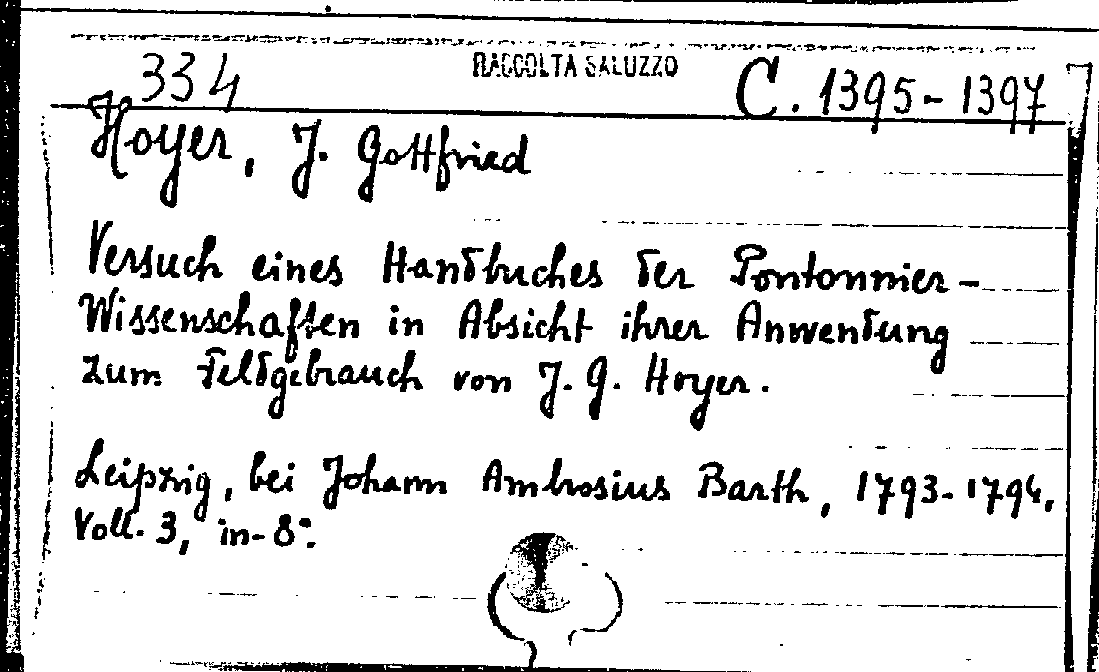 334 RACCOLTA SALUZZO C. 1395-1397
Hoyer, J. Gottfried
Versuch eines Handbuches der Pontonnier-
Wissenschaften in Absicht ihrer Anwendung
zum Feldgebrauch von J. G. Hoyer.
Leipzig, bei Johann Ambrosius Barth, 1793-1794.
Voll. 3, in-8°.